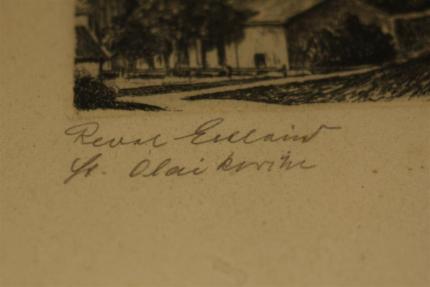 Reval Estland
St. Olai Kirche